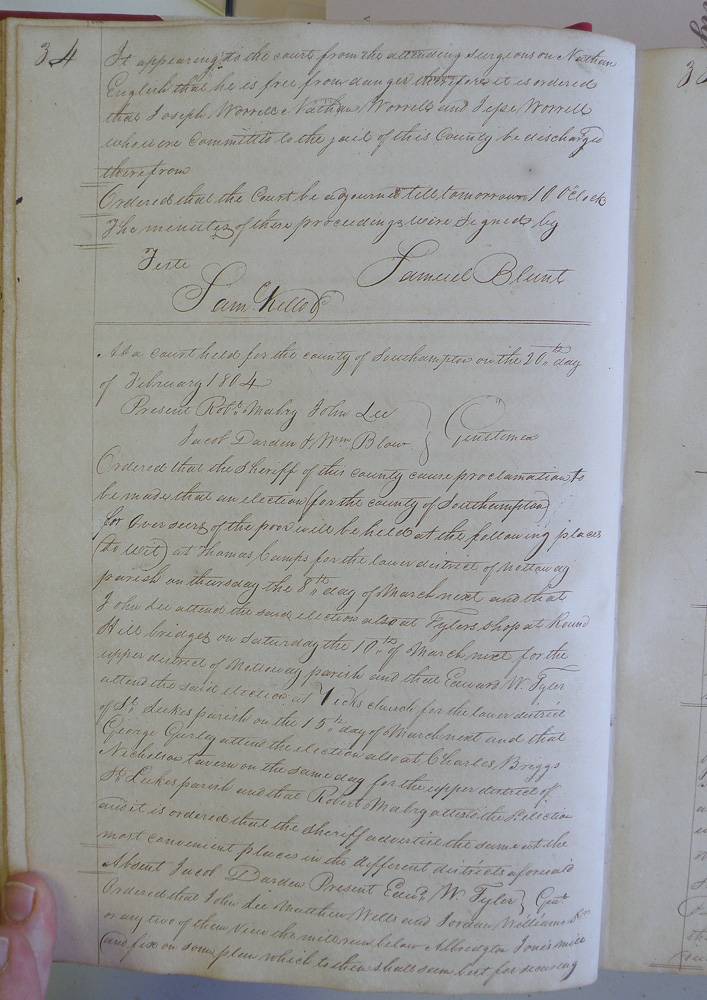 34
It appearing to the court from the attending surgeons on Nathan
English that he is free from danger therefore it is ordered
that Joseph Worrell Nathan Worrell and Jesse Worrell
who were committed to the jail of this County be discharged
therefrom
Ordered that the Court be adjourned till tomorrow 10 oClock
The minutes of these proceedings were signed by
Teste
Samuel Blunt
Sam. Kello C
At a court held for the county of Southampton on the 20th day
of February 1804
Present Robt. Mabry John Lee
Jacob Darden & Wm Blow
Gentlemen
Ordered that the Sheriff of this county cause proclamation to
be made that an election (for the county of Southampton)
for Overseers of the poor will be held at the following places
(to wit) at Thomas Camps for the lower district of Nottoway
parish on thursday the 8th day of March next and that
John Lee attend the said election also at Tylers shop at Round
Hill bridges on Saturday the 10th of March next for the
upper district of Nottoway parish and that Edward W. Tyler
attend the said election at Vicks church for the lower district
of St. Lukes parish on the 15th day of March next and that
George Gurley attend the election also at Charles Briggs
Nicholson tavern on the same day for the upper district of
St. Lukes parish and that Robert Mabry attend the Election
and it is ordered that the Sheriff advertise the same at the
most convenient places in the different districts aforesaid
Absent Jacob Darden Present Edwd. W. Tyler Gent
Ordered that John Lee Matthew Wells and Jordan Williams
or any two of them view the mill run below Albridgton Jones's mill
and fix on some plan which to them shall seem best for securing